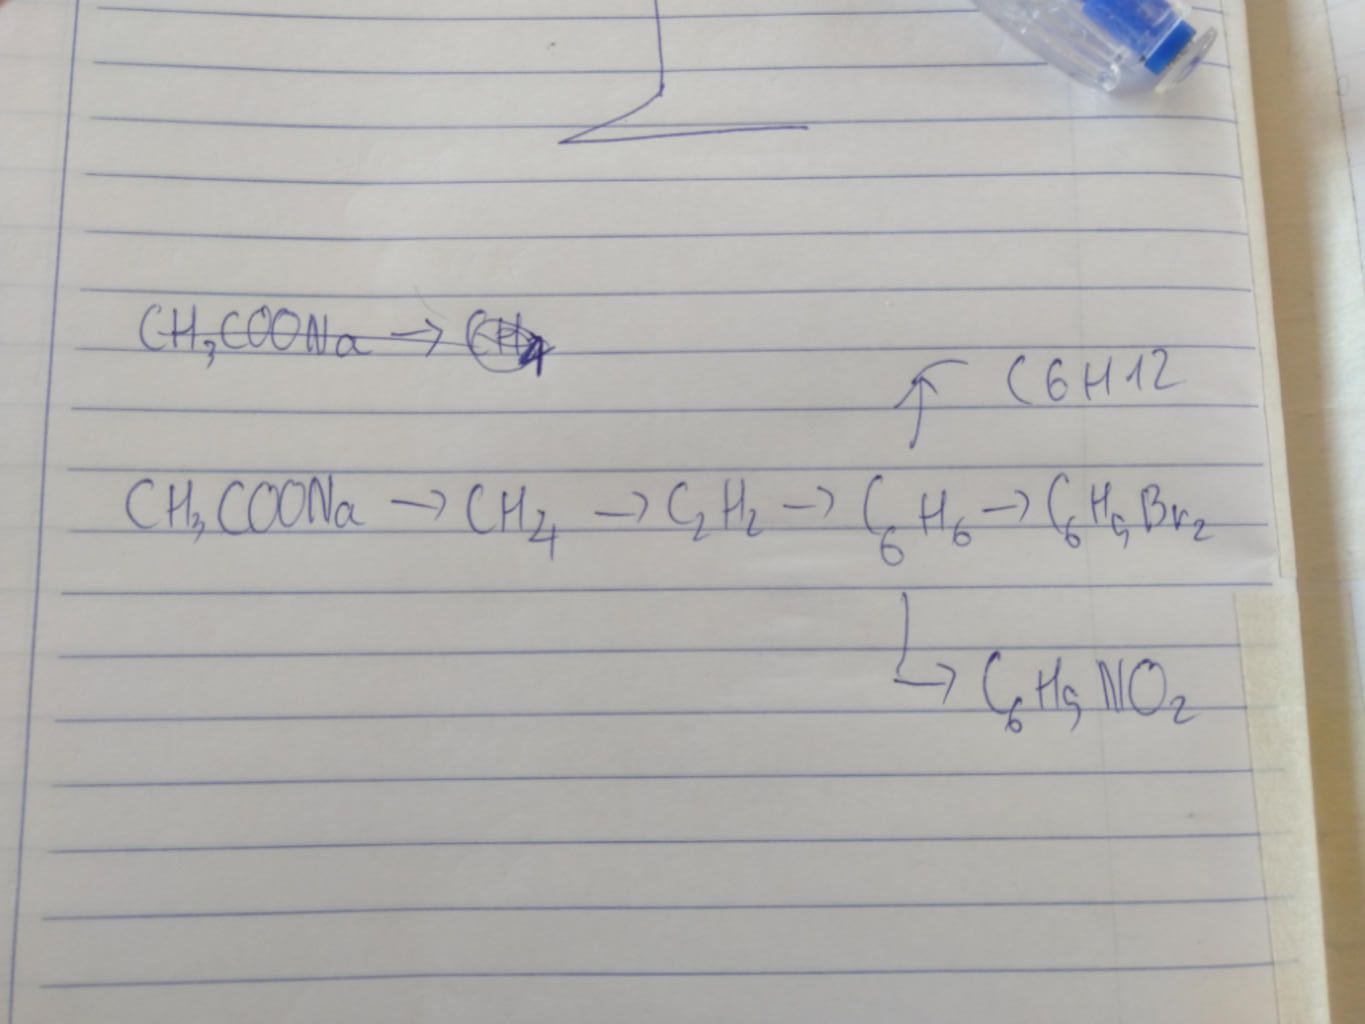 CH₃COONa → CH₄
C6H12
CH₃COONa → CH₄ → C₂H₂ → C₆H₆ → C₆H₅Br₂
C₆H₅NO₂